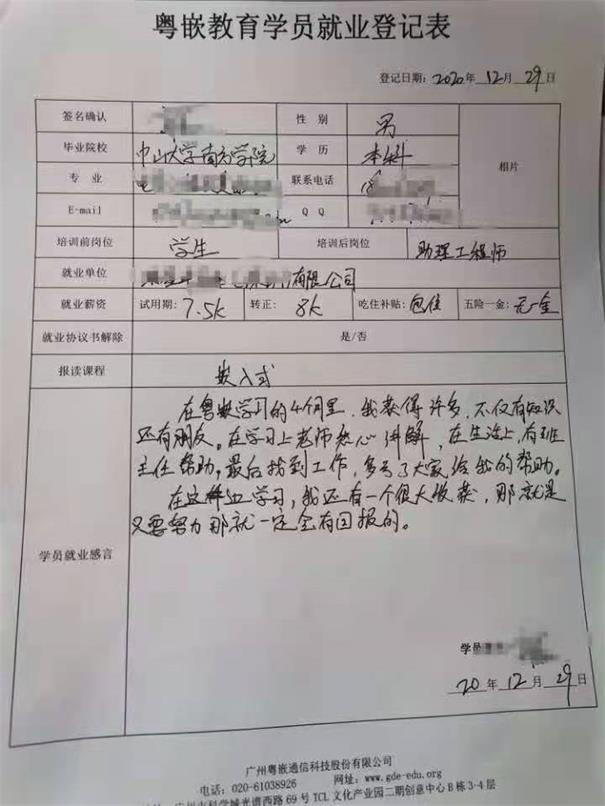 粤嵌教育学员就业登记表
登记日期：2020年 12月 29日
签名确认 性 别 男
毕业院校 中山大学南方学院 学 历 本科
相片
专 业 联系电话
E-mail Q Q
培训前岗位 学生 培训后岗位 助理工程师
就业单位 有限公司
就业薪资 试用期：7.5k 转正：8k 吃住补贴：包住 五险一金：无一金
就业协议书解除 是/否
报读课程 嵌入式
在粤嵌学习的4个月里，我获得许多，不仅有知识
还有朋友。在学习上老师热心讲解，在生活上，有班
主任帮助。最后找到工作，多亏了大家给我的帮助。
在这样边学习，我还有一个很大收获，那就是
只要努力那就一定会有回报的。
学员就业感言
学员
20年 12月 29日
广州粤嵌通信科技股份有限公司
电话：020-61038926 网址：www.gde-edu.org
广州市科学城光谱西路 69 号 TCL 文化产业园二期创意中心 B 栋 3-4 层